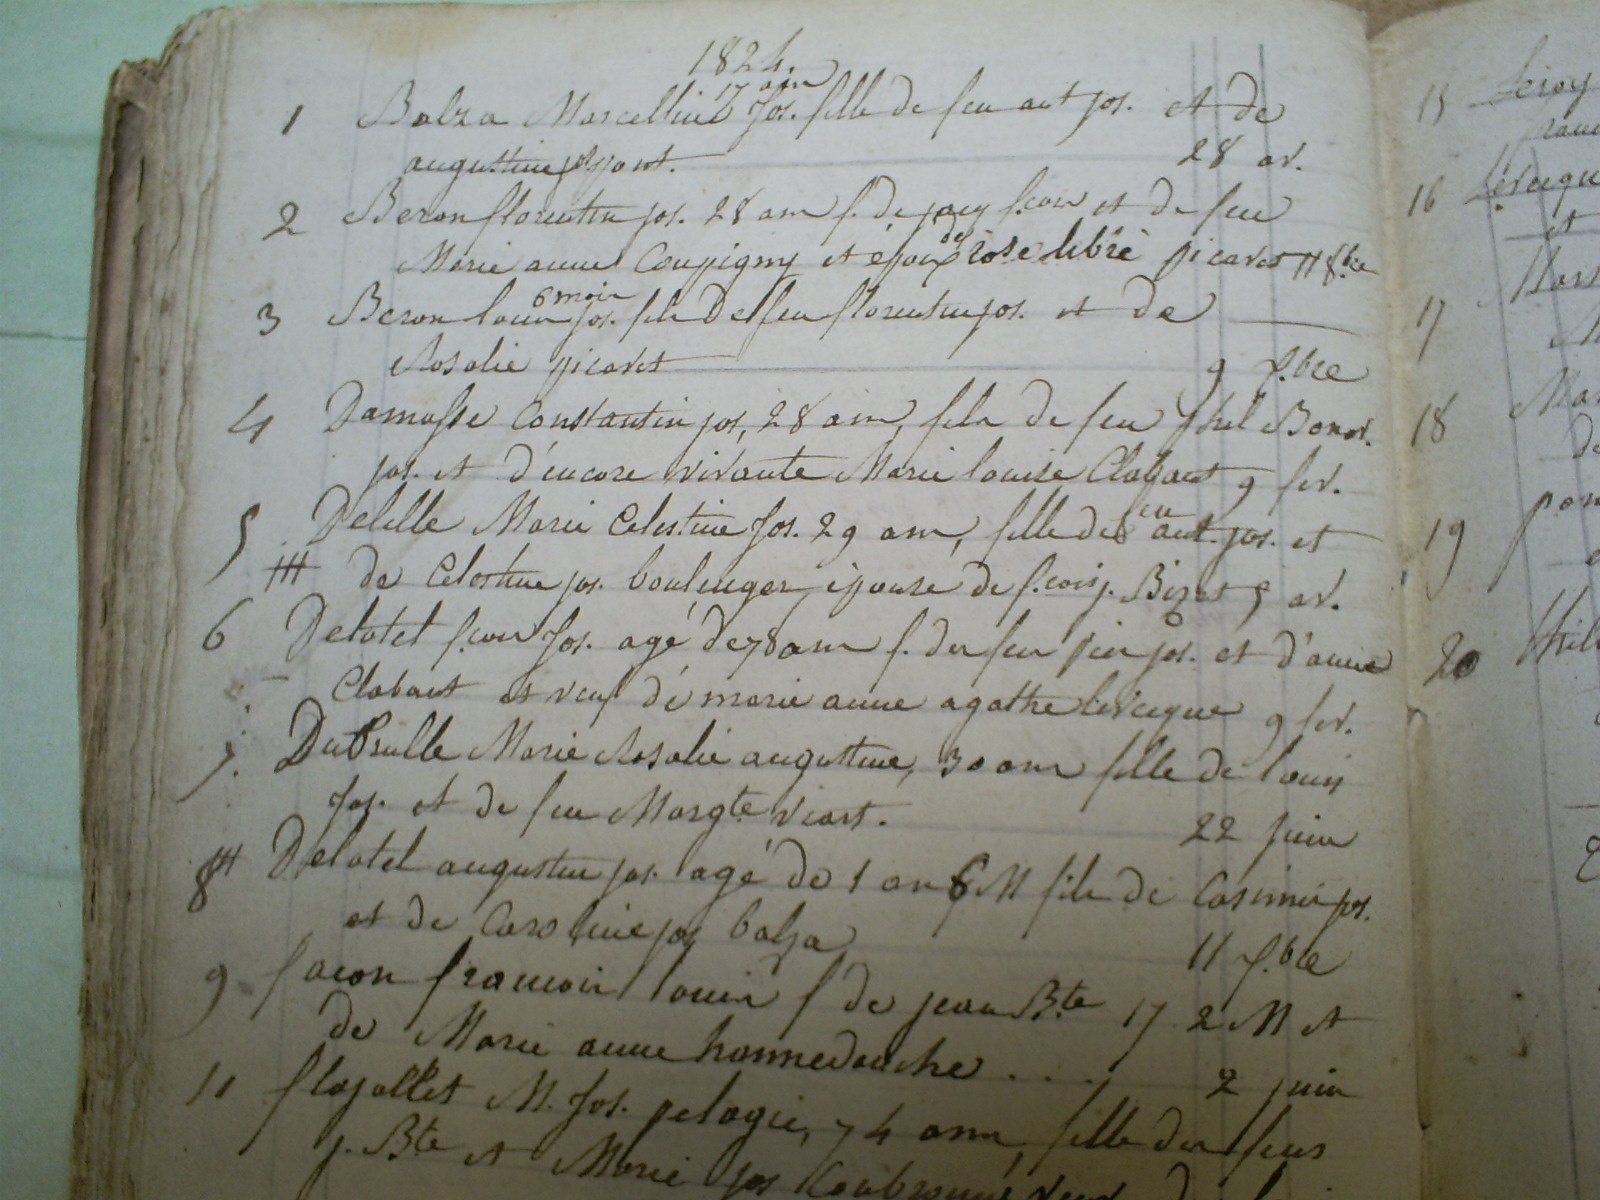 1824.
17 ans
1 Balza Marcelline Jos. fille de feu ant jos. et de
augustine pajart. 28 av.
2 Beron florentin jos. 28 ans f. de f.cois et de feu
Marie anne Coupigny et époux de rose libre picavet 11 8.bre
6 mois
3 Beron louis jos. fils De feu florentin jos. et de
Rosalie picavet 9 7.bre
4 Damasse Constantin jos, 28 ans, fils de feu phil Bonav.
jos. et d'encore vivante Marie louise Clabaut 9 fev.
5 Delelle Marie Celestine Jos. 29 ans, fille de feu ant. jos. et
de Celestine jos. boulenger épouse de f.cois j. Bizet 5 av.
6 Delatel f.cois Jos. agé de 78 ans f. des feu pier jos. et d'anne
Clabaut et veuf de marie anne agathe levecque 9 fev.
7. DuBrulle Marie Rosalie augustine, 30 ans fille de louis
Jos. et de feu Margte. viart. 22 juin
8 Delatel augustin jos. agé de 1 an 6 M fils de Casimir jos.
et de Caroline jos balza 11 7.bre
9 facon francois louis f de jean Bte 17 2 M et
de Marie anne hannedouche .... 2 juin
11 flajollet M. Jos. pelagie, 74 ans, fille des feus
j. Bte et Marie jos
15 Leroy
16 Levecqu
et
17
18 Mar
de
19 pon
20